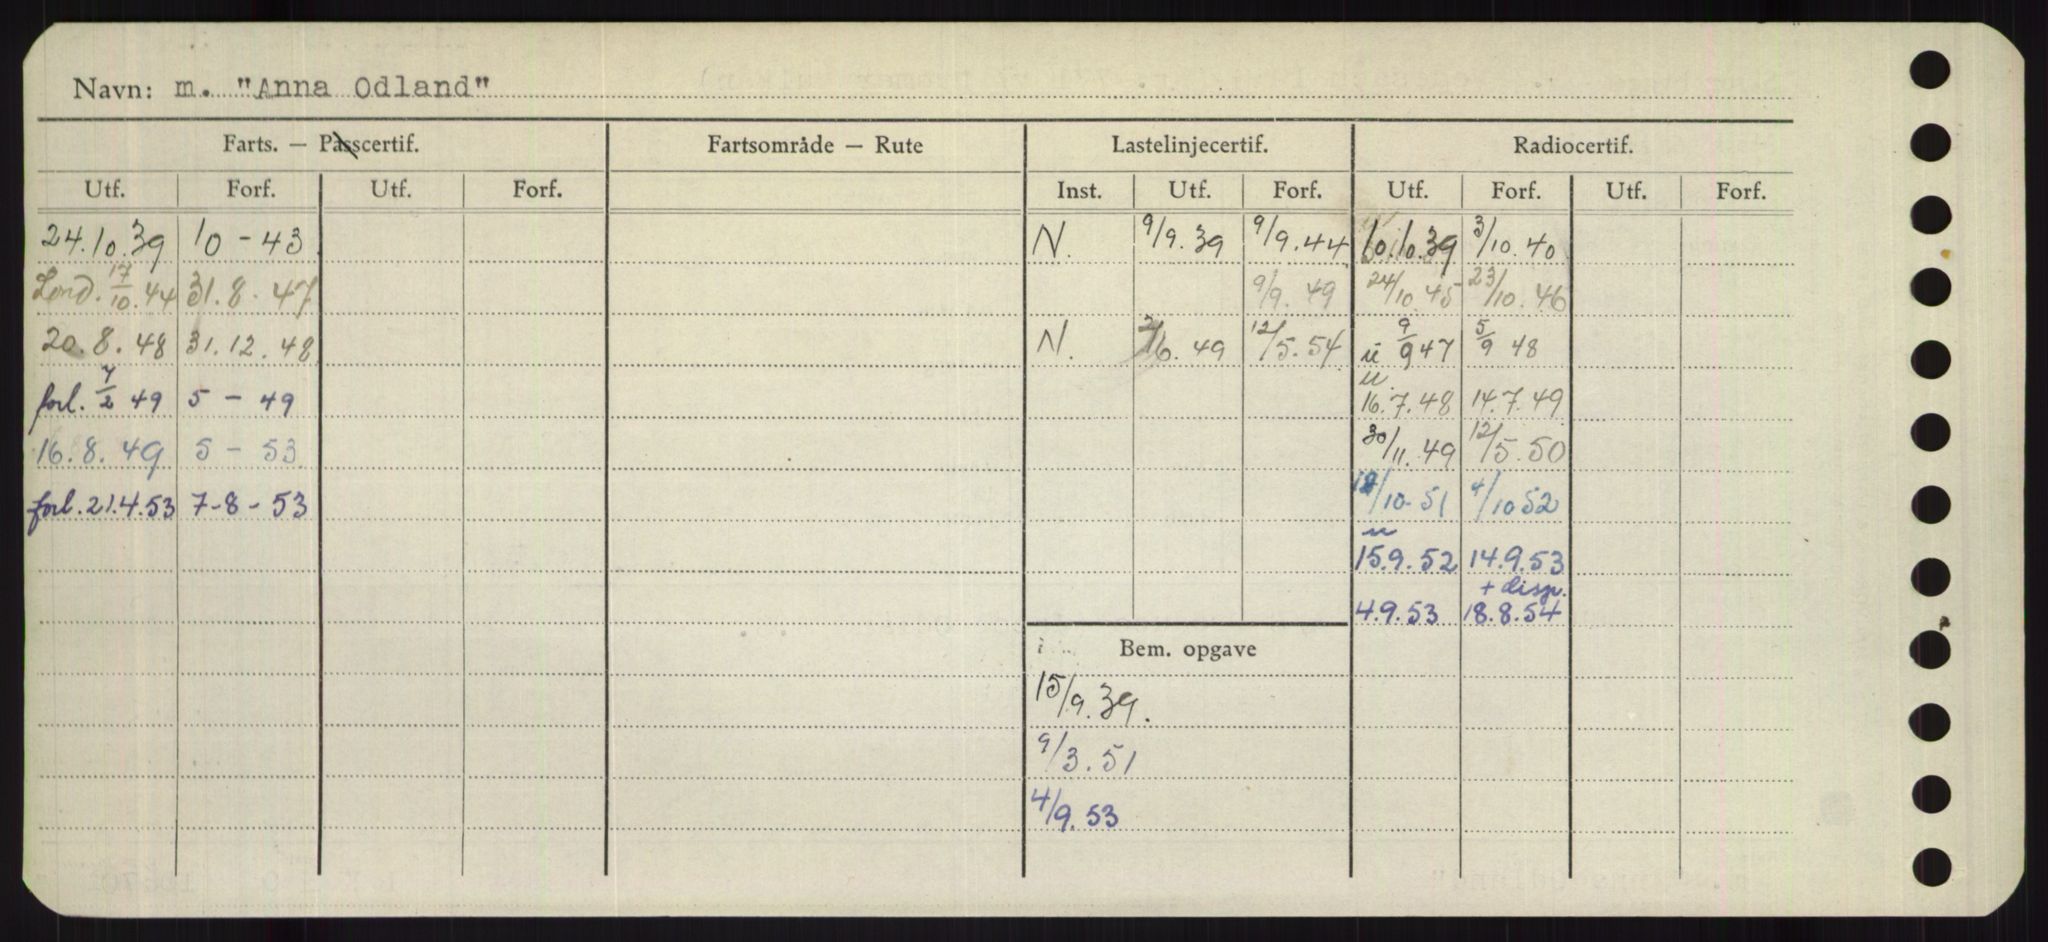 Navn: m. "Anna Odland"
Farts. — Passcertif. Fartsområde — Rute Lastelinjecertif. Radiocertif.
Utf. Forf. Utf. Forf. Inst. Utf. Forf. Utf. Forf. Utf. Forf.
24.10.39 10 - 43 N. 9/9.39 9/9.44 10.10.39 3/10.40
Lond. 17/10.44 31.8.47 9/9.49 24/10.45 23/10.46
20.8.48 31.12.48 N. 2/6.49 12/5.54 u 9/9 47 5/9 48
forl. 7/2 49 5 - 49 u. 16.7.48 14.7.49
16.8.49 5 - 53 30/11.49 12/5.50
forl. 21.4.53 7-8-53 /10.51 4/10 52
u
15.9.52 14.9.53
+ disp.
4.9.53 18.8.54
Bem. opgave
15/9.39.
9/3.51
4/9.53